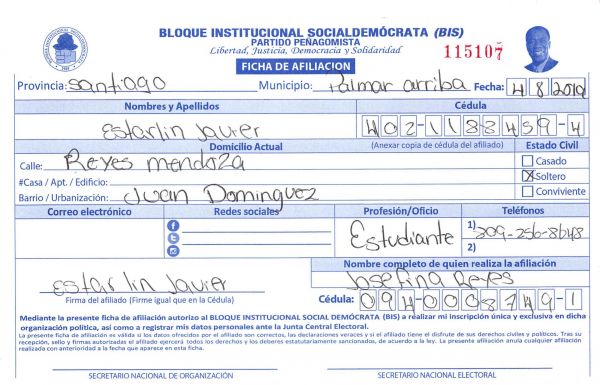 BLOQUE INSTITUCIONAL SOCIALDEMÓCRATA (BIS)
PARTIDO PEÑAGOMISTA
Libertad, Justicia, Democracia y Solidaridad
115107
FICHA DE AFILIACION
Provincia: Santiago Municipio: Palmar arriba Fecha: 4 8 2019
Nombres y Apellidos Cédula
Estarlin Javier 402-1188459-4
Domicilio Actual (Anexar copia de cédula del afiliado) Estado Civil
Calle: Reyes mendoza Casado
#Casa / Apt. / Edificio: X Soltero
Barrio / Urbanización: Juan Dominguez Conviviente
Correo electrónico Redes sociales Profesión/Oficio Teléfonos
Estudiante 1) 809-256-8648
2)
Nombre completo de quien realiza la afiliación
Estarlin Javier Josefina Reyes
Firma del afiliado (Firme igual que en la Cédula) Cédula: 094-0008749-1
Mediante la presente ficha de afiliación autorizo al BLOQUE INSTITUCIONAL SOCIAL DEMÓCRATA (BIS) a realizar mi inscripción única y exclusiva en dicha
organización política, así como a registrar mis datos personales ante la Junta Central Electoral.
La presente ficha de afiliación es válida si los datos ofrecidos por el afiliado son correctos, las declaraciones veraces y si el afiliado tiene el disfrute de sus derechos civiles y políticos. Tras su
recepción, sello y firmas autorizadas el afiliado ejercerá todos los derechos y los deberes estatutariamente sancionados, de acuerdo a la ley. La presente afiliación anula cualquier afiliación
realizada con anterioridad a la fecha que aparece en esta ficha.
SECRETARIO NACIONAL DE ORGANIZACIÓN SECRETARIO NACIONAL ELECTORAL